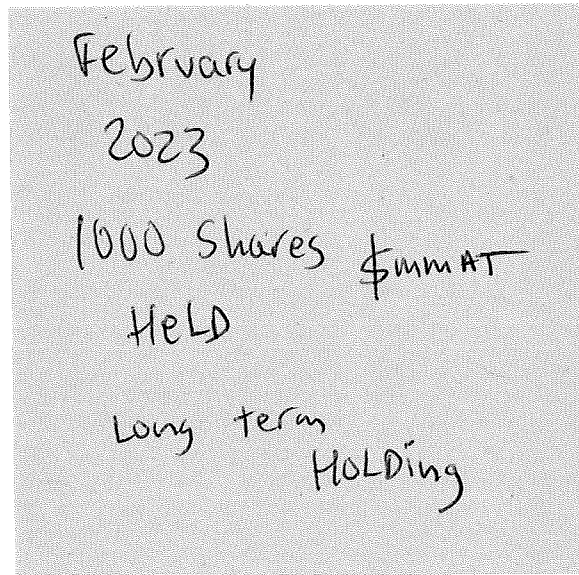 February
2023
1000 Shares $mmAT
HeLD
Long term
HOLDing